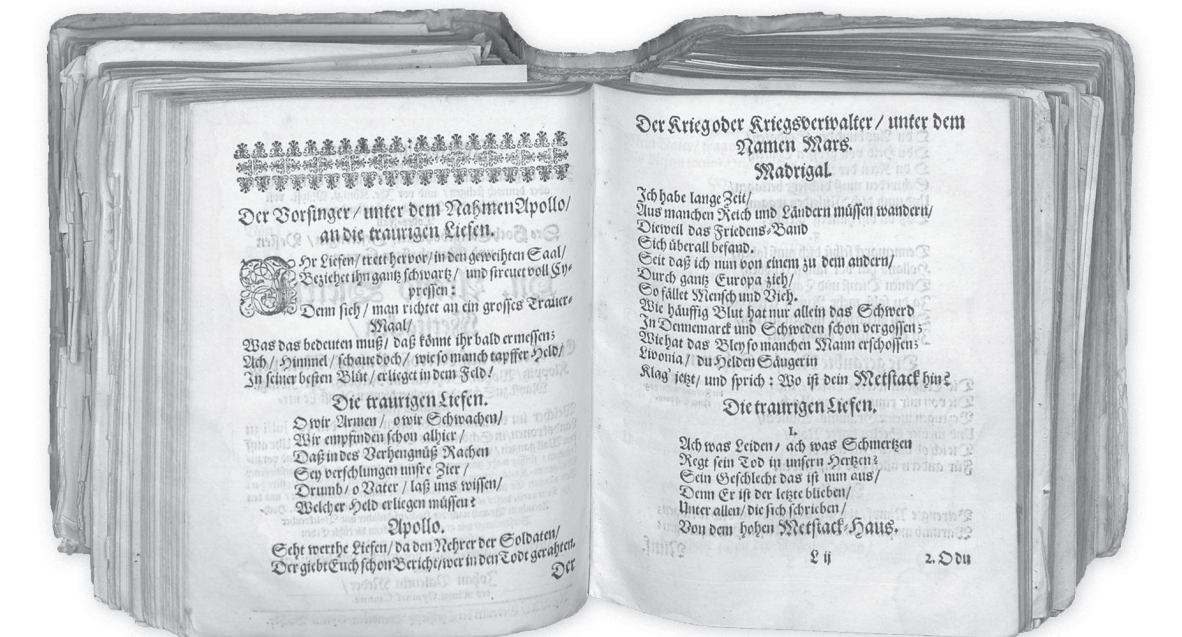 Der Vorsinger / unter dem Nahmen Apollo/
an die traurigen Liefen.
IHr Liefen/ trett hervor/ in den geweihten Saal/
Beziehet ihn gantz schwartz / und streuet voll Cy-
pressen :
Denn sieh / man richtet an ein grosses Trauer-
Maal/
Was das bedeuten muß/ daß könnt ihr bald ermessen;
Ach/ Himmel / schaue doch/ wie so manch tapffer Held/
In seiner besten Blüt/ erlieget in dem Feld!
Die traurigen Liefen.
O wir Armen / o wir Schwachen/
Wir empfinden schon alhier /
Daß in des Verhengnüß Rachen
Sey verschlungen unsre Zier /
Drumb/ o Vater / laß uns wissen/
Welcher Held erliegen müssen?
Apollo.
Seht werthe Liefen/ da den Nehrer der Soldaten/
Der giebt Euch schon Bericht/ wer in den Todt gerahten.
Der
Der Krieg oder Kriegsverwalter / unter dem
Namen Mars.
Madrigal.
Ich habe lange Zeit/
Aus manchen Reich und Ländern müssen wandern/
Dieweil das Friedens-Band
Sich überall befand.
Seit daß ich nun von einem zu dem andern/
Durch gantz Europa zieh/
So fället Mensch und Vieh.
Wie häuffig Blut hat nur allein das Schwerd
In Dennemarck und Schweden schon vergossen;
Wie hat das Bley so manchen Mann erschossen;
Livonia / du Helden Säugerin
Klag' jetzt/ und sprich : Wo ist dein Metstack hin?
Die traurigen Liefen.
1.
Ach was Leiden/ ach was Schmertzen
Regt sein Tod in unsern Hertzen?
Sein Geschlecht das ist nun aus/
Denn Er ist der letzte blieben/
Unter allen/ die sich schrieben/
Von dem hohen Metstack-Haus.
L ij
2. O du